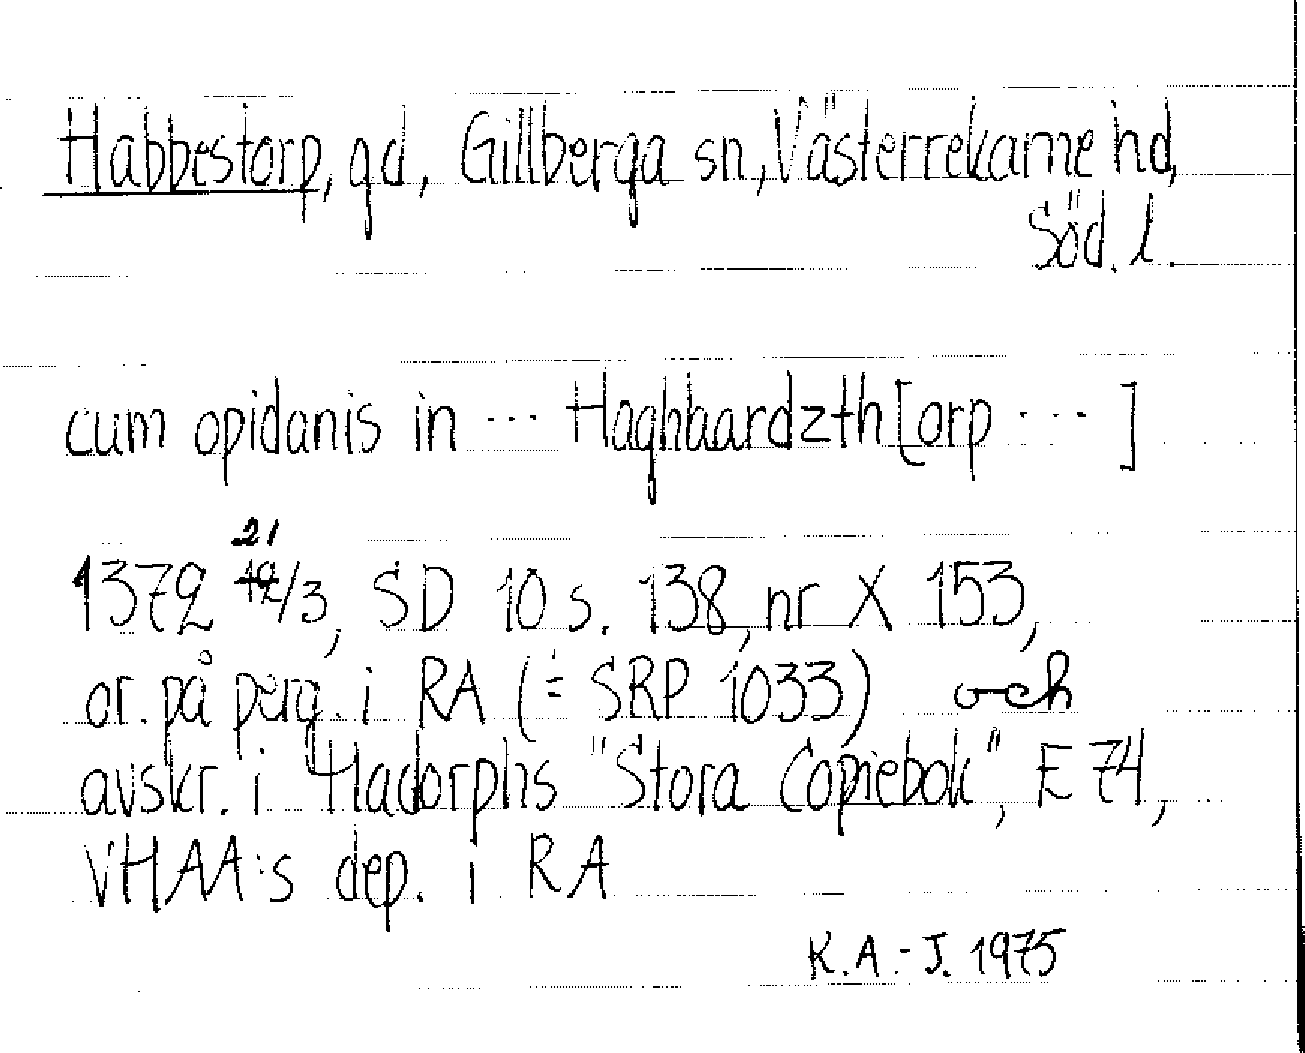 Habbestorp, gd, Gillberga sn, Västerrekarne hd,
Söd. l.
cum opidanis in ... Haghbardzth[orp ... ]
21
1372 12/3, SD 10 s. 138, nr X 153,
or. på perg. i RA (= SRP 1033) och
avskr. i Hadorphs "Stora Copiebok", E 74,
VHAA:s dep. i RA
K.A.-J. 1975